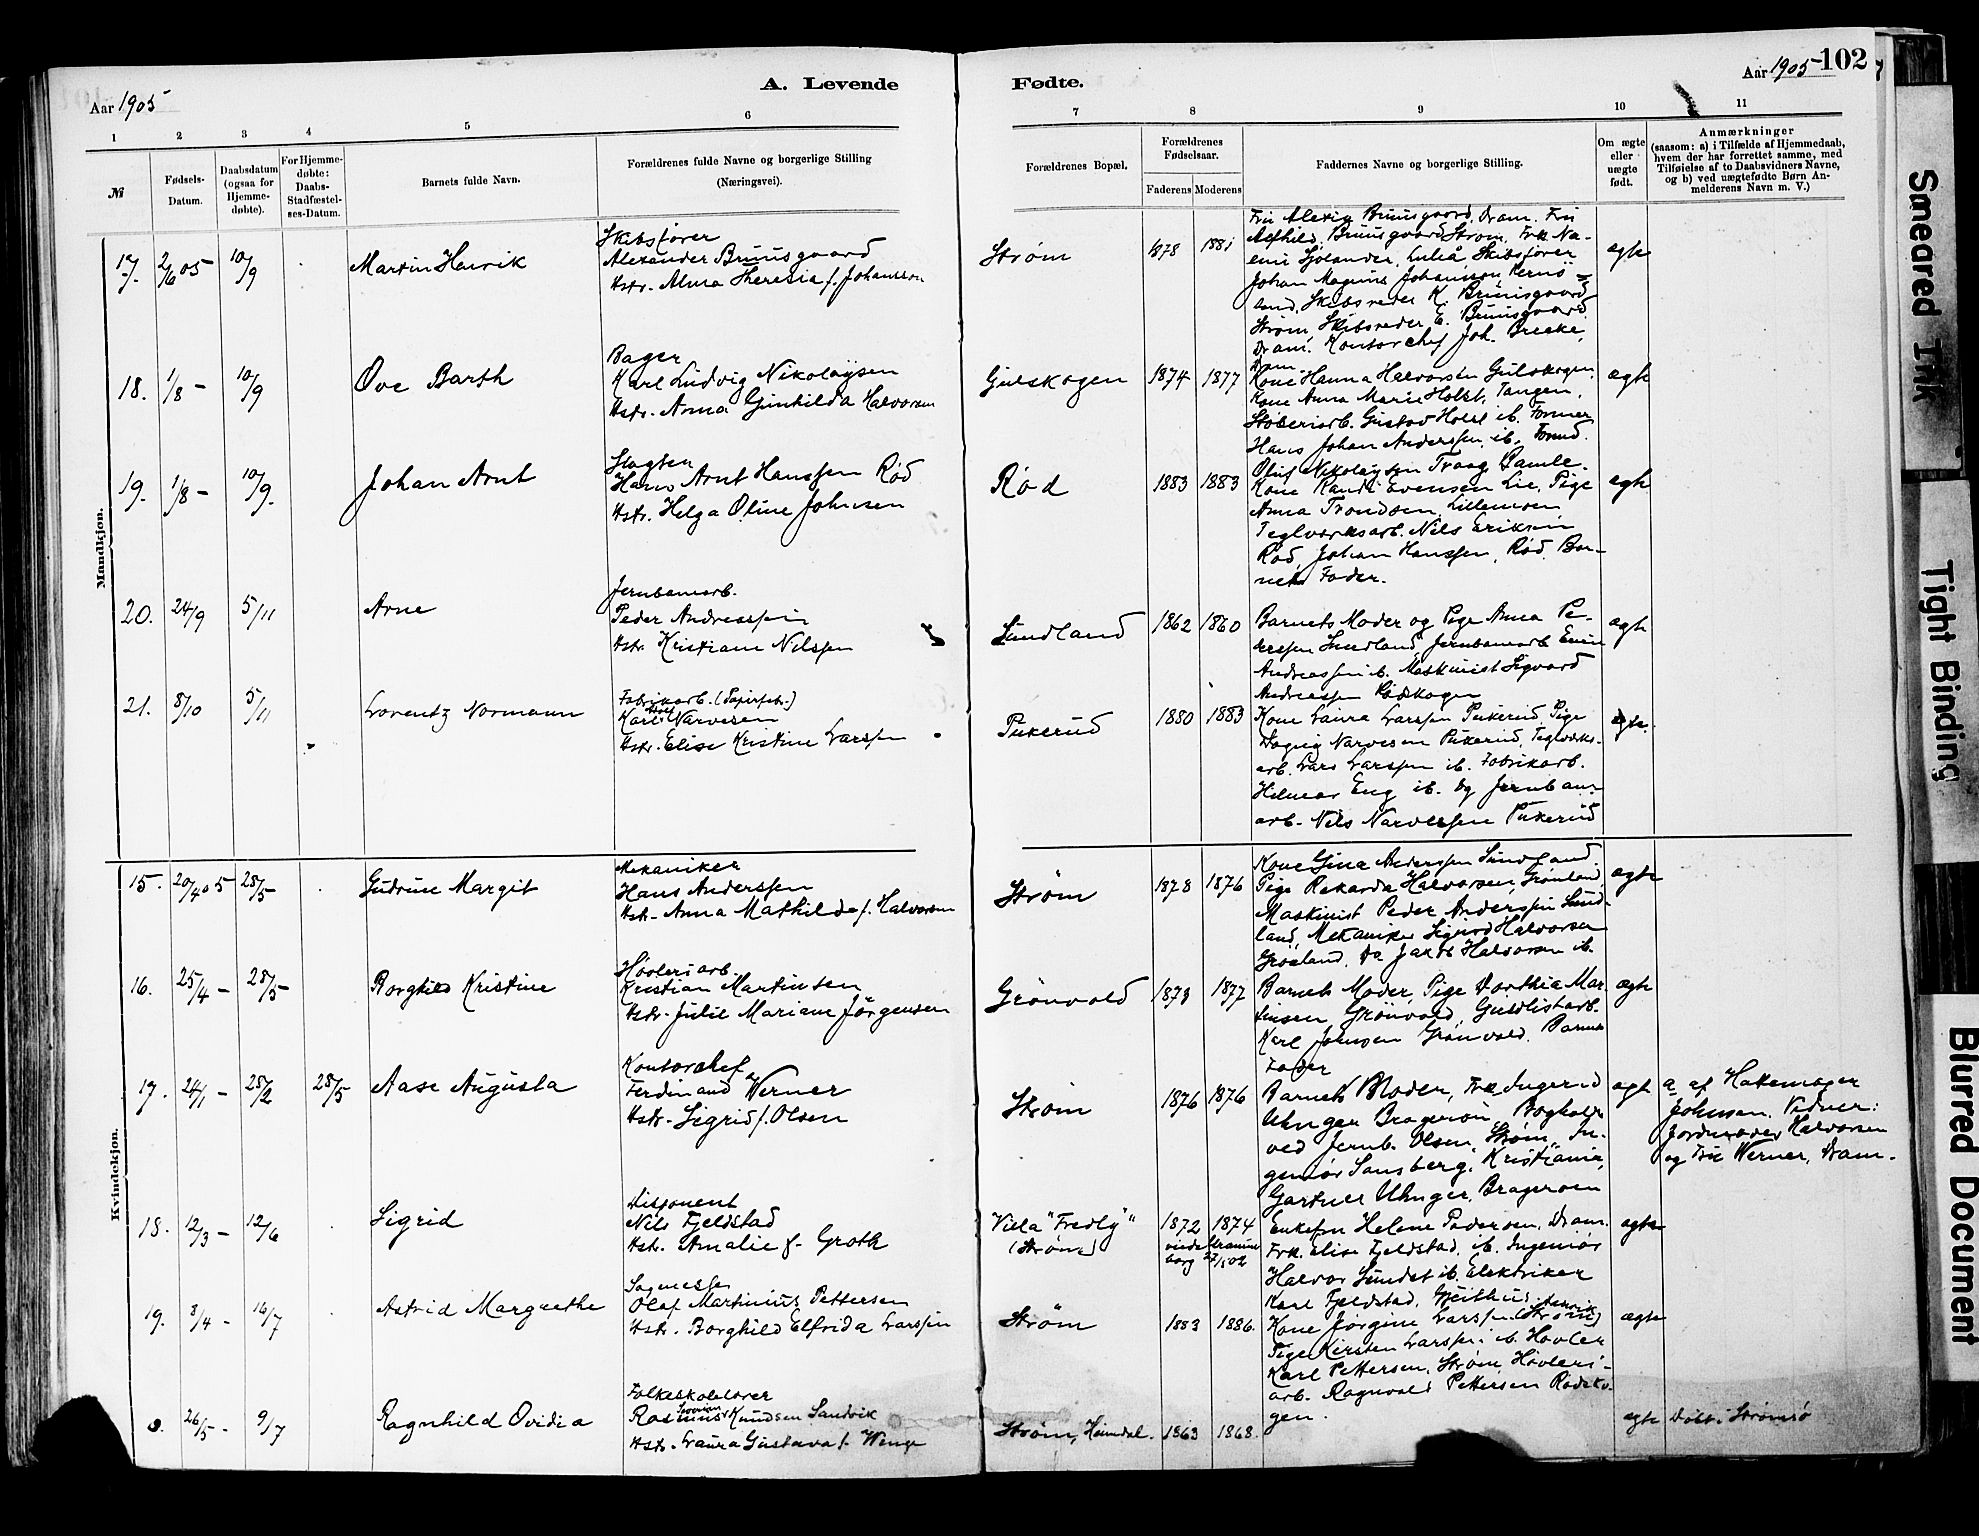 Aar 1905
A. Levende
Fødte.
Aar 1905
102
1 2 3 4 5 6 7 8 9 10 11
№
Fødsels-Datum.
Daabsdatum (ogsaa for Hjemme-døbte).
For Hjemme-døbte: Daabs-Stadfæstel-ses-Datum.
Barnets fulde Navn.
Forældrenes fulde Navne og borgerlige Stilling
(Næringsvei).
Forældrenes Bopæl.
Forældrenes Fødselsaar.
Faderens Moderens
Faddernes Navne og borgerlige Stilling.
Om ægte eller uægte født.
Anmærkninger
(saasom: a) i Tilfælde af Hjemmedaab,
hvem der har forrettet samme, med
Tilføielse af to Daabsvidners Navne,
og b) ved uægtefødte Børn An-
melderens Navn m. V.)
Mandkjøn.
17. 2/6 05 10/9 Martin Henrik
Skibsfører
Alexander Bruusgaard
Hstr. Alma Theresia f. Johansson
Strøm 1878 1881
Bruusgaard, Dram. Fru
Bruusgaard Strøm, Frk.
Skibsfører
Johan Magnus Johansson
Skibsreder K. Bruusgaard
Strøm, Skibsreder E. Bruusgaard
Dram. Kontorchef Joh. Brecke,
Dram.
ægte
18. 1/8 - 10/9 Ove Barth
Bager
Karl Ludvig Nikolaysen
Hstr. Anna Gunhilda Halvorsen
Gulskogen 1874 1877
Kone Hanna Halvorsen Gulskogen,
Kone Anna Marie Holst, Tangen,
Støberiarb. Gustav Holst ib. Former
Hans Johan Anderssen, ib.
Oluf Nikolaysen Traag Bamle.
ægte
19. 1/8 - 10/9. Johan Arnt
Hans Arnt Hanssen Rød
Hstr. Helga Oline Johnsen
Rød 1883 1883
Kone Randi Evensen Lie, Pige
Anna Trondsen, Lillemoen,
Teglværksarb. Nils Eriksen
Rød, Johan Hanssen, Rød. Bar-
nets Fader.
ægte
20. 24/9 5/11 Arne
Jernbanearb.
Peder Andreassen
Hstr. Kristiane Nilssen
Sundland 1862 1860
Barnets Moder og Pige Anna Pe-
derssen Sundland, Jernbanearb.
Andreassen ib. Maskinist Sigvard
Andreassen Rødskogen
ægte
21. 8/10 5/11 Lorentz Normann
Fabrikarb. (Papirfabr.)
Karl Narvesen
Hstr. Elise Kristine Larssen
Pukerud 1880 1883
Kone Laura Larssen Pukerud, Pige
Dagny Narvesen Pukerud, Teglværks-
arb. Lars Larssen ib. Fabrikarb.
Hilmar Eng ib. og Jernbane-
arb. Nils Narvessen Pukerud
ægte.
Kvindekjøn.
15. 20/4 05 28/5 Gudrun Margit
Mekaniker
Hans Anderssen
Hstr. Anna Mathilde f. Halvorsen
Strøm 1878 1876
Kone Gina Anderssen Sundland.
Pige Rikarda Halvorsen, Grønland,
Maskinist Peder Anderssen Sund-
land, Mekaniker Sigurd Halvorsen
Grønland, Do Jakob Halvorsen ib.
ægte
16. 25/4 - 28/5 Borghild Kristine
Høvleriarb.
Kristian Martinsen
Hstr. Julie Mariane Jörgensen
Grönvold 1878 1877
Barnets Moder, Pige Dorthea Mar-
tinsen Grönvold, Guldlistarb.
Karl Johnsen Grönvold. Barnets
Fader
ægte
17. 24/1 - 28/2 28/5 Aase Augusta
Kontorchef
Ferdinand Werner
Hstr. Sigrid f. Olsen
Strøm 1876 1876
Barnets Moder, Frk. Ingerid
Unger Bragerøen, Bogholder
ved Jernb. Olsen, Strøm, In-
geniør Sansberg, Kristiania,
Gartner Unger, Bragerøen
ægte
a af Hattemager
Johnsen. Vidner:
Jordmoder Halvorsen
og Fru Werner, Dram.
18. 12/3 - 12/6 Sigrid
Disponent
Nils Fjeldstad
Hstr. Amalie f. Groth
Villa "Fredly" (Strøm) 1872 1874
Enkefru Helene Pedersen, Dram.
Frk. Elise Fjeldstad, ib. Ingeniør
Halvor Sundet ib. Elektriker
Karl Fjeldstad, Gjeithus.
ægte
19. 8/4 - 16/7 Astrid Margrethe
Sagmester
Olaf Martinius Pettersen
Hstr. Borghild Elfrida Larssen
Strøm 1883 1886.
Kone Jørgine Larssen (Strøm)
Pige Kirsten Larssen ib. Høvler
Karl Pettersen, Strøm Høvleri-
arb. Ragnvald Pettersen Rødsko-
gen.
ægte
26/5 - 9/7 Ragnhild Ovidia
Folkeskolelærer
Rasmus Severin Knudsen Sandvik
Hstr. Laura Gustava f. Wenge
Strøm, Heimdal. 1863 1868.
ægte Døbt i Strømsø
Smeared Ink
Tight Binding
Blurred Document